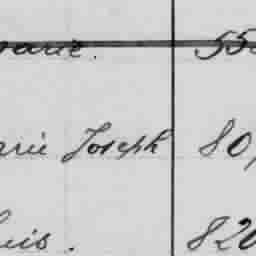 arie. 550
arie Joseph 80,
uis. 820